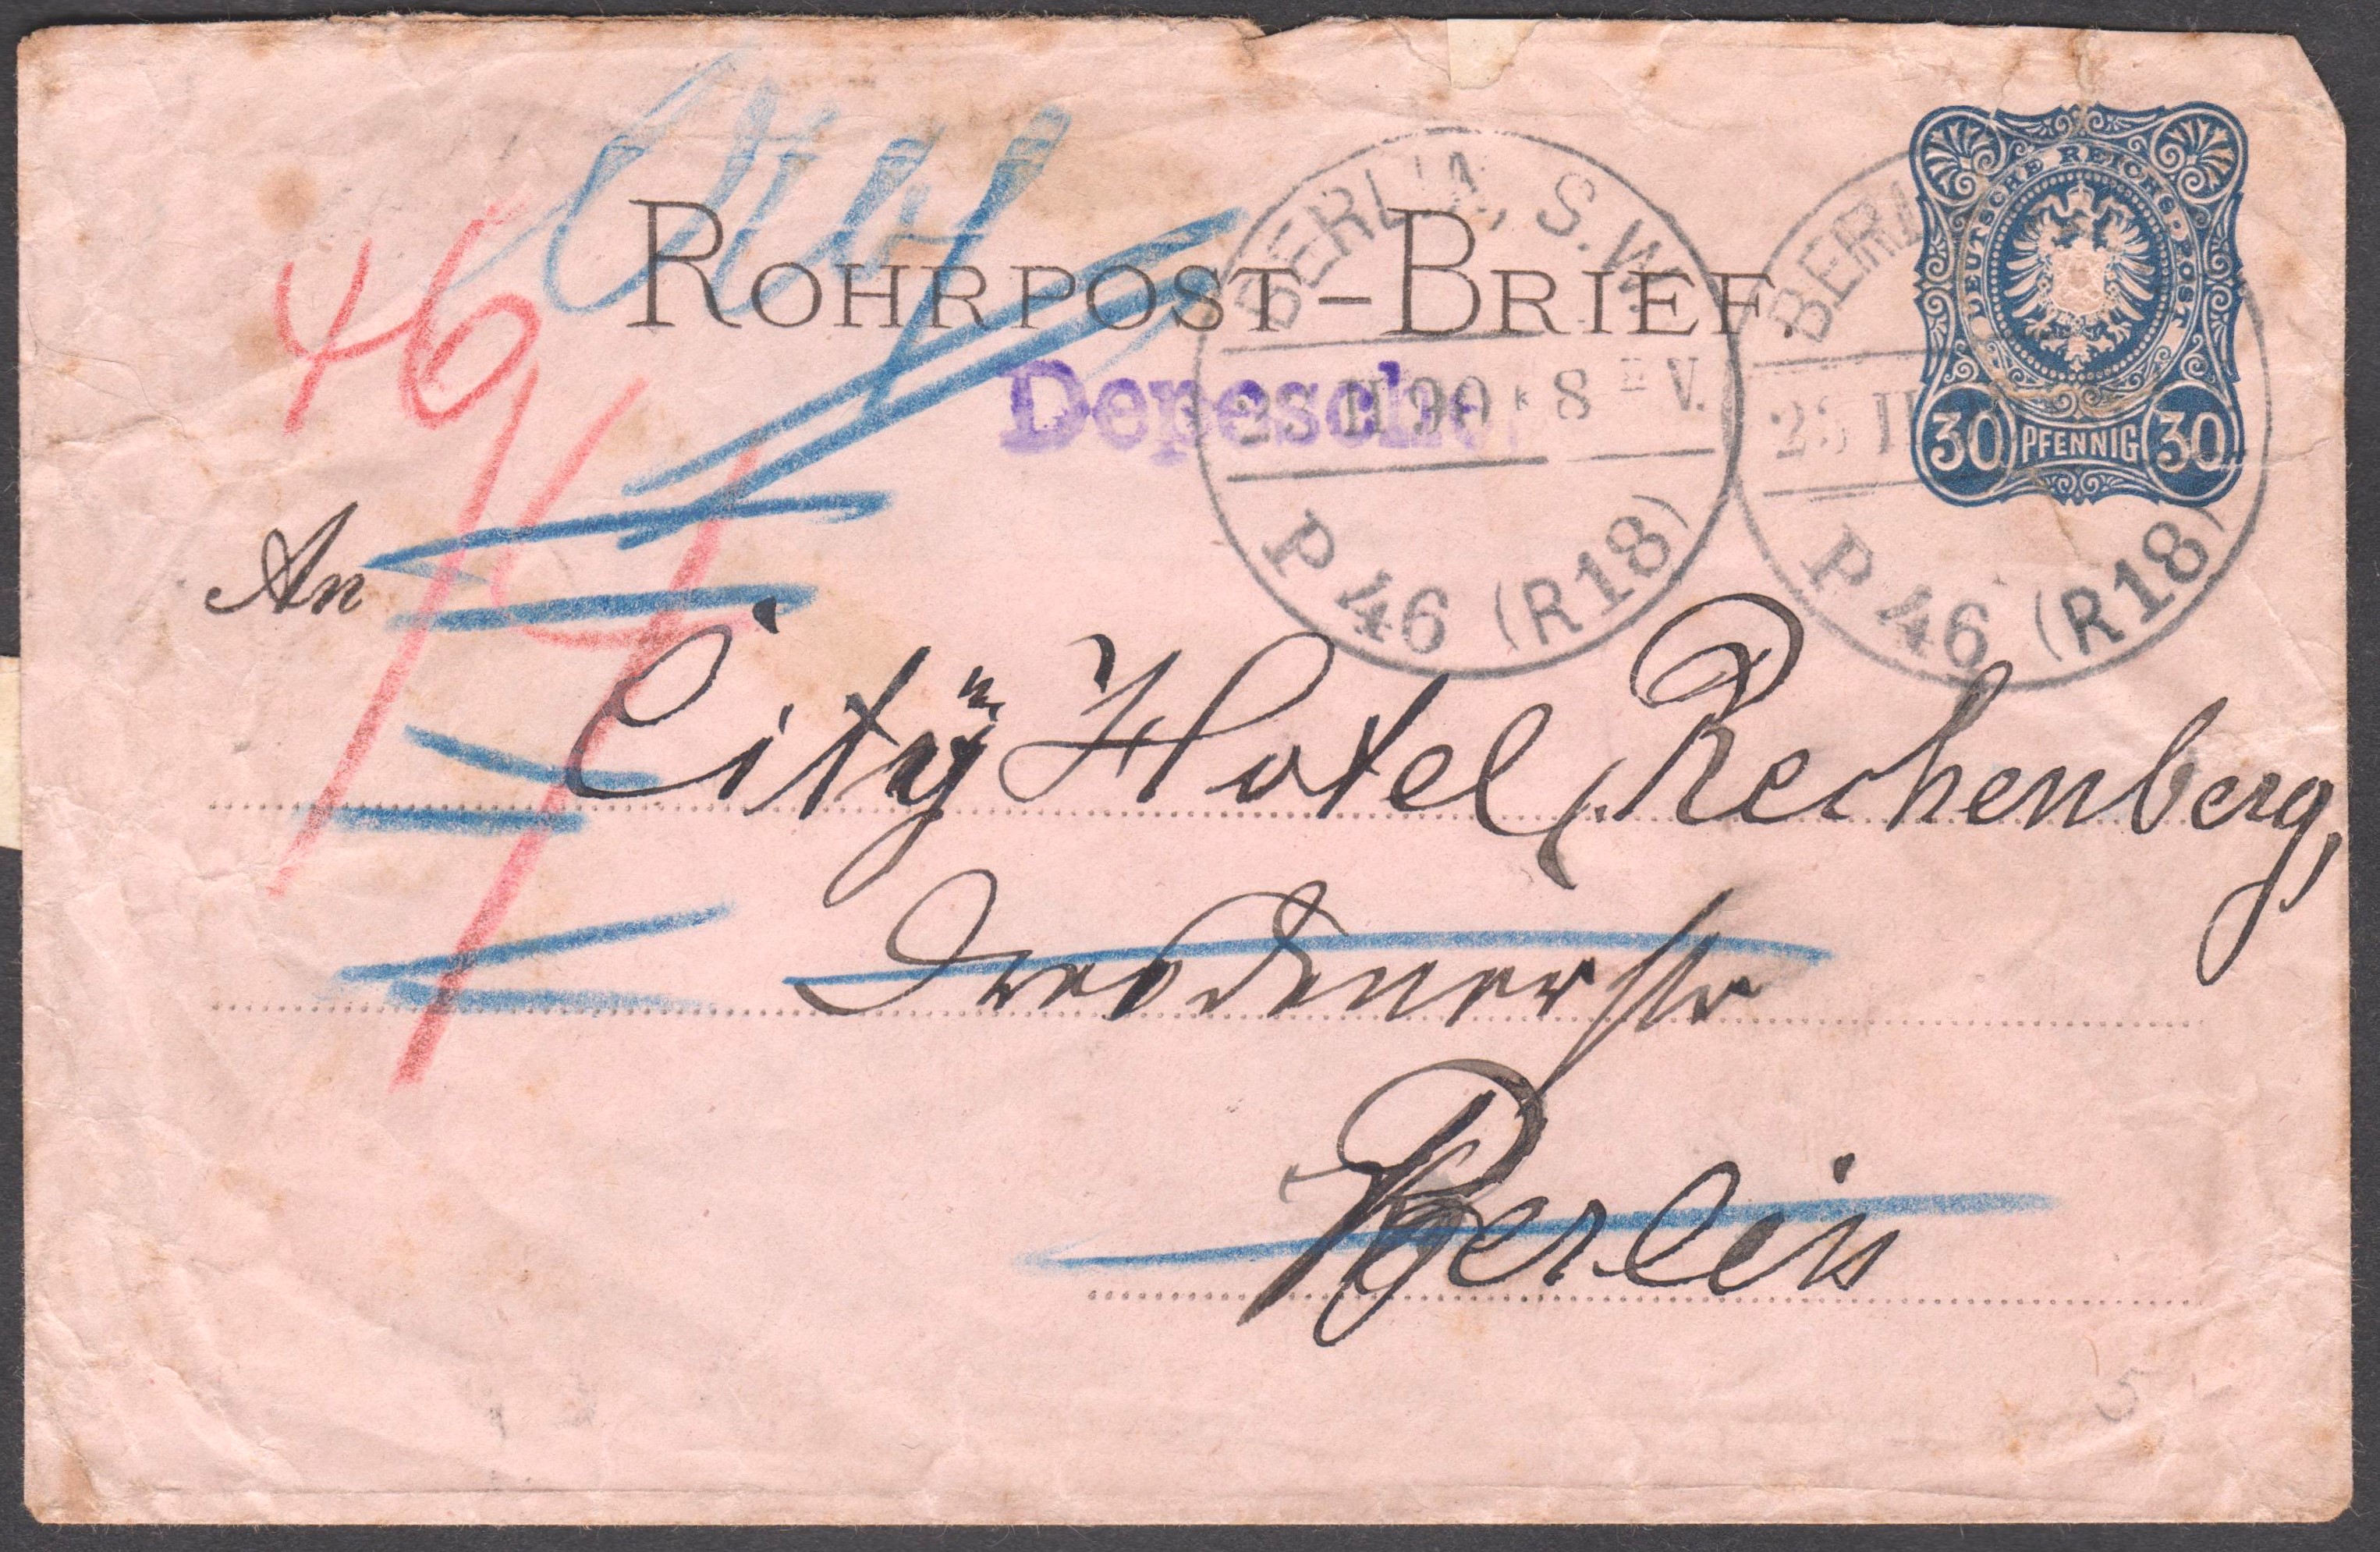 46
ROHRPOST-BRIEF.
Depesche
BERLIN, S.W.
23 II 90 * 8 V.
P 46 (R18)
BERL
II
P 46 (R18)
DEUTSCHE REICHS-POST
30 PFENNIG 30
An
City Hotel, Rechenberg,
Dresdenerstr
Berlin